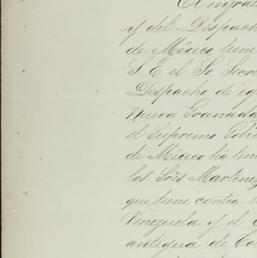 El infra
y del Despach
de México tiene
S. E. el Sr. Secre
Despacho de ig
Nueva Granada
el Supremo Gobi
de México ha ten
los Sres. Martinez
que tiene contra
Venezuela y el
antigua de Co